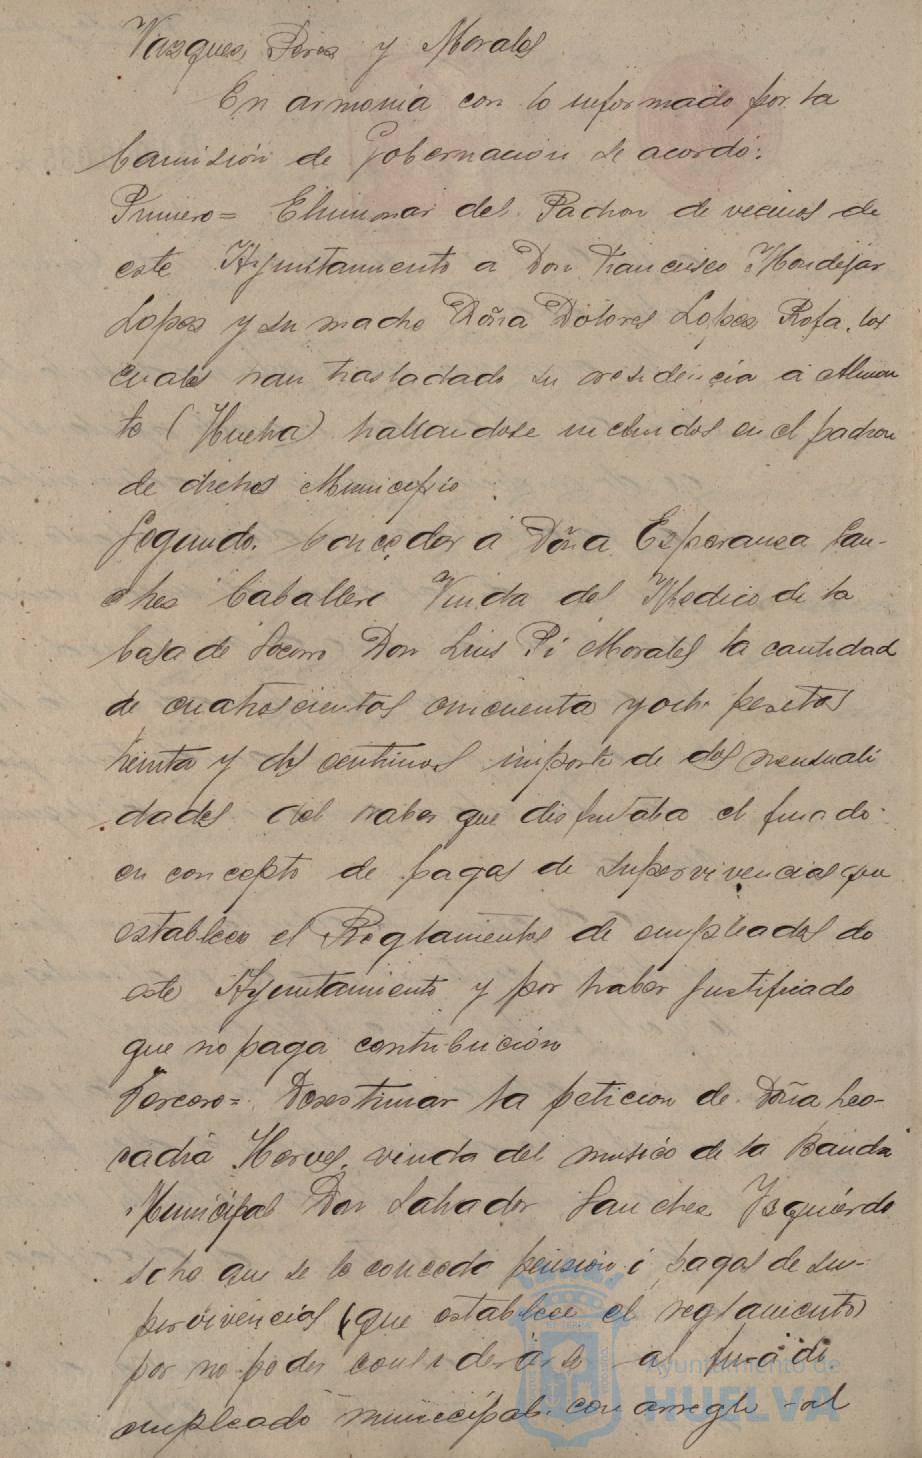 Vazquez, Perez y Morales
En armonia con lo informado por la
Comisión de Gobernacion se acordó:
Primero= Eliminar del Padron de vecinos de
este Ayuntamiento a Don Francisco Mondejar
Lopez y su madre Doña Dolores Lopez Rofa, los
cuales han trasladado su residencia a Almon
te (Huelva) hallandose incluidos en el padron
de dichos Municipio
Segundo. Conceder á Doña Esperanza San-
chez Caballero Viuda del Medico de la
Casa de Socorro Don Luis Pí Morales la cantidad
de cuatroscientos cincuenta y ocho pesetas
treinta y dos centimos importe de dos mensuali
dades del haber que disfrutaba el finado
en concepto de pagas de supervivencias que
establece el Reglamentos de empleados de
este Ayuntamiento y por haber justificado
que no paga contribución
Tercero= Desestimar la peticion de Doña Leo-
cadia Herves, viuda del musico de la Banda
Municipal Don Salvador Sanchez Ysquierdo
sobre que se le conceda pension ó pagas de su-
pervivencias (que establece el reglamento)
por no poder considerarse al finado
empleado municipal con arreglo al
Ayuntamiento de
HUELVA